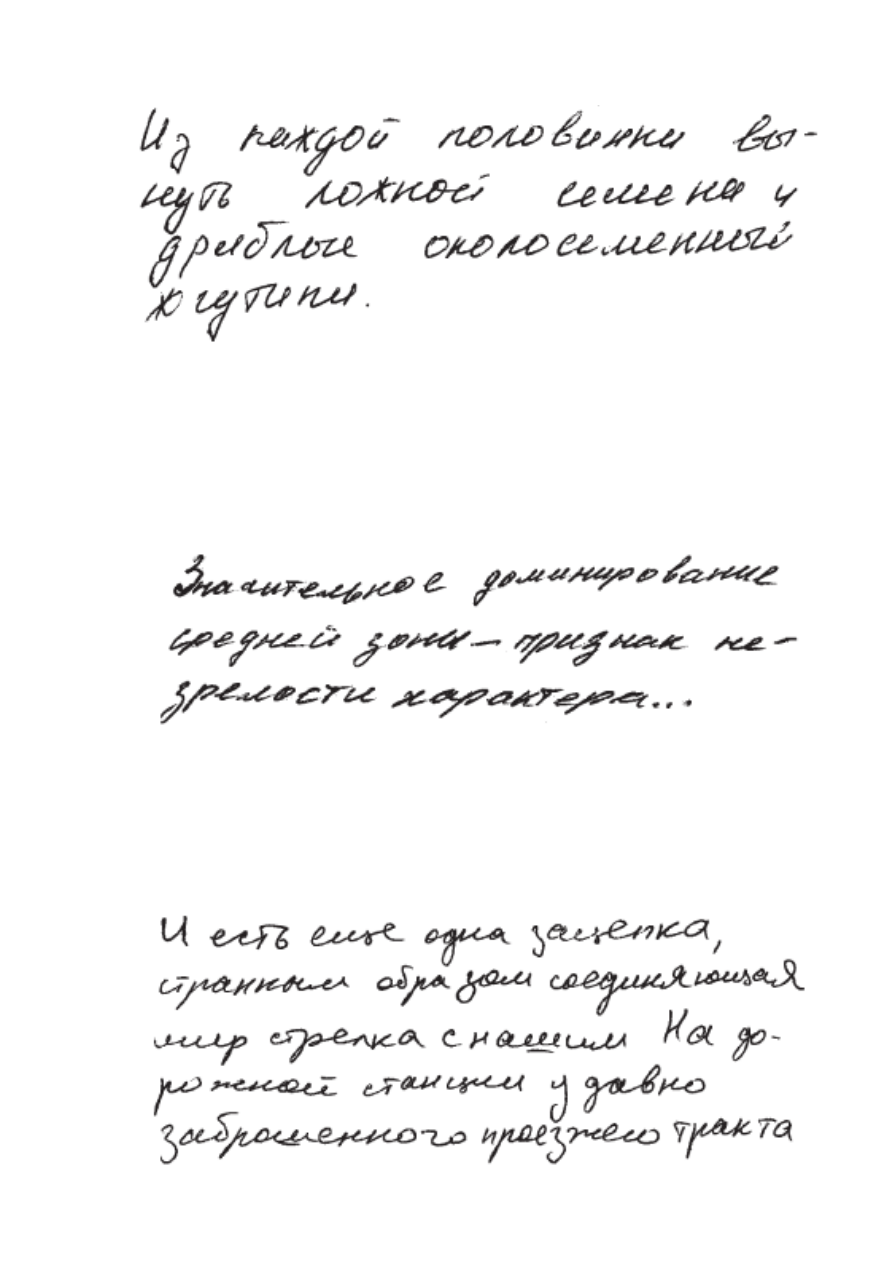 Из каждой половинки вы-
нуть ложкой семена и
дряблые околосеменный
жгутики.
Значительное доминирование
средней зоны – признак не-
зрелости характера...
И есть еще одна зацепка,
странным образом соединяющая
мир стрелка с нашим На до-
рожной станции у давно
заброшенного проезжего тракта